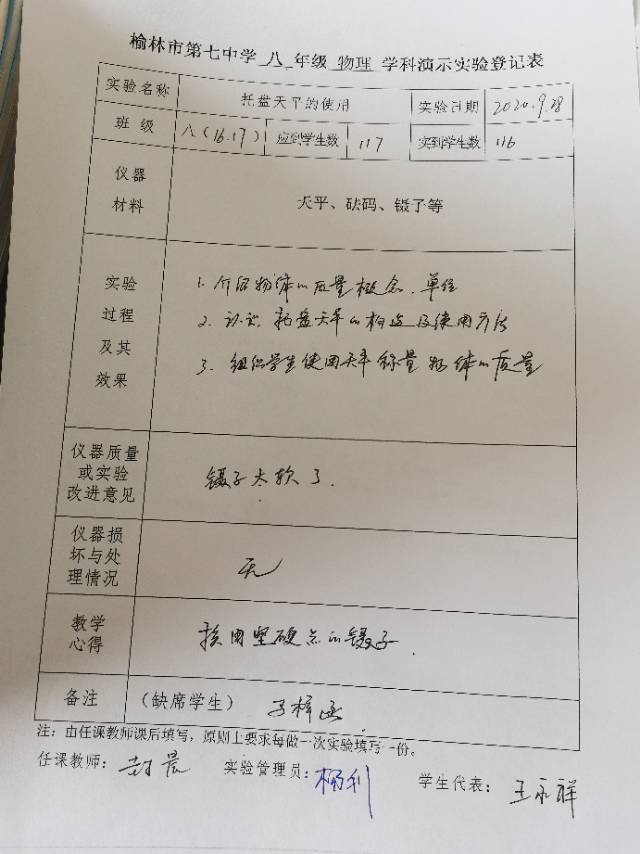 榆林市第七中学 八 年级 物理 学科演示实验登记表
实验名称 托盘天平的使用 实验日期 2020.9.28
班 级 八(16.17) 应到学生数 117 实到学生数 116
仪器
材料
天平、砝码、镊子等
实验
过程
及其
效果
1. 介绍物体的质量概念、单位
2. 认识托盘天平的构造及使用方法
3. 组织学生使用天平称量物体的质量
仪器质量
或实验
改进意见
镊子太软了.
仪器损
坏与处
理情况
无
教学
心得
换用坚硬点的镊子.
备注 (缺席学生)
注:由任课教师课后填写,原则上要求每做一次实验填写一份。
任课教师: 封晨 实验管理员: 杨利 学生代表: 王永祥